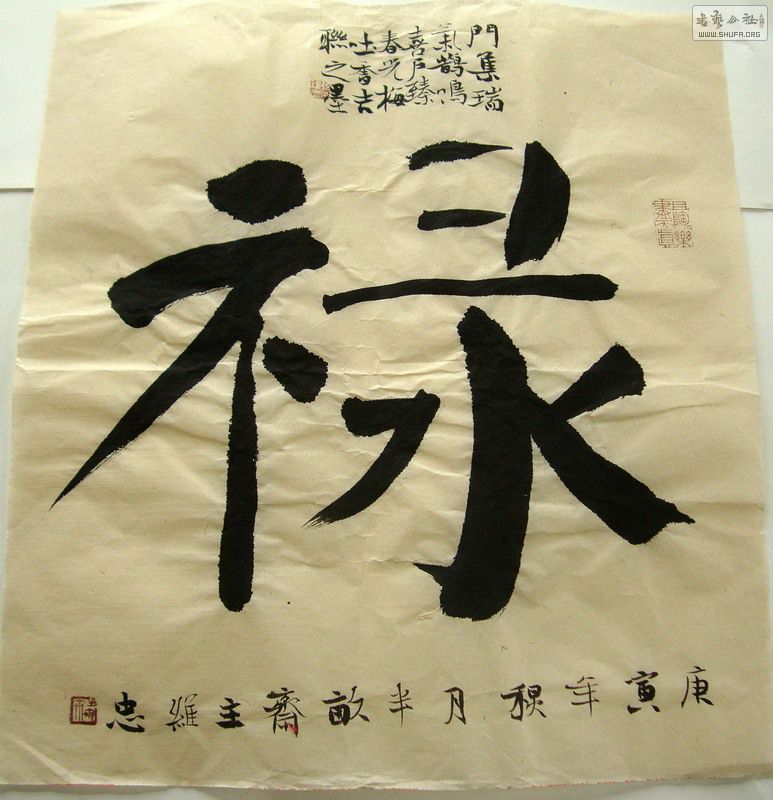 門集瑞
氣鵲鳴
喜戶臻
春光梅
吐香吉
聯之墨
禄
庚寅年秋月半畝齋主維忠
书艺公社
WWW.SHUFA.ORG